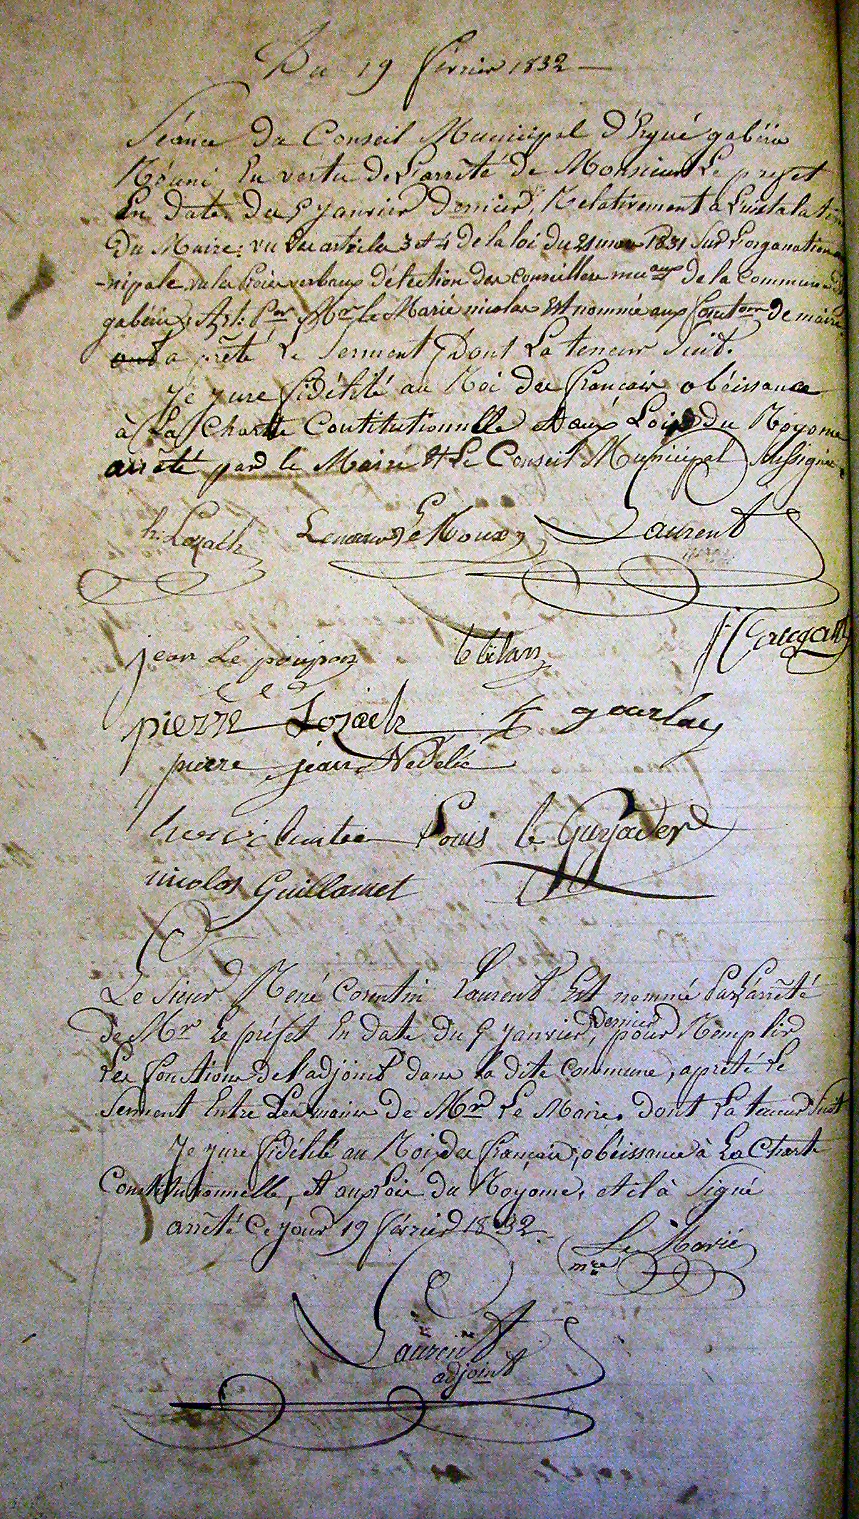 Du 19 février 1832
Séance du Conseil Municipal d'Ergué gabéric
Réuni En vertu de L'arrêté de Monsieur Le prefet
En date du 9 janvier dernier, Relativement à L'installation
Du Maire: vu les articles 3 et 4 de la loi du 21 mars 1831 Sur l'organation
-nipale vu les procès verbaux d'élection des conseillers m.aux de la commune
gabéric; Art. 1.er M.r le Marié nicolas Est nommé aux fonct.ons de maire
a prêté Le Serment, Dont La teneur Suit.
Je jure fidélité au Roi des français obéissance
à La Charte Contitutionnelle et aux Lois du Royome
arrêté par le Maire et Le Conseil Municipal
h. Lozach Le Roux Laurent
jean Le poupon le bihan
pierre Lozach gourlay
pierre jean Nédélic
Louis le Guyader
nicolas Guillamet
Le Sieur René Corentin Laurent Est nommé Par L'arrêté
de M.r Le préfet En date du 9 janvier, dernier pour Remplir
Les fonctions de l'adjoint dans la dite commune, a prêté Le
Serment Entre Les mains de M.r Le Maire. dont La teneur Suit
Je jure fidélité au Roi des français, obéissance à La Charte
Constitutionnelle, et aux Lois du Royome, et il à Signé
arrêté Ce jour 19 février 1832.
Le Marié
m.re
Laurent
adjoint